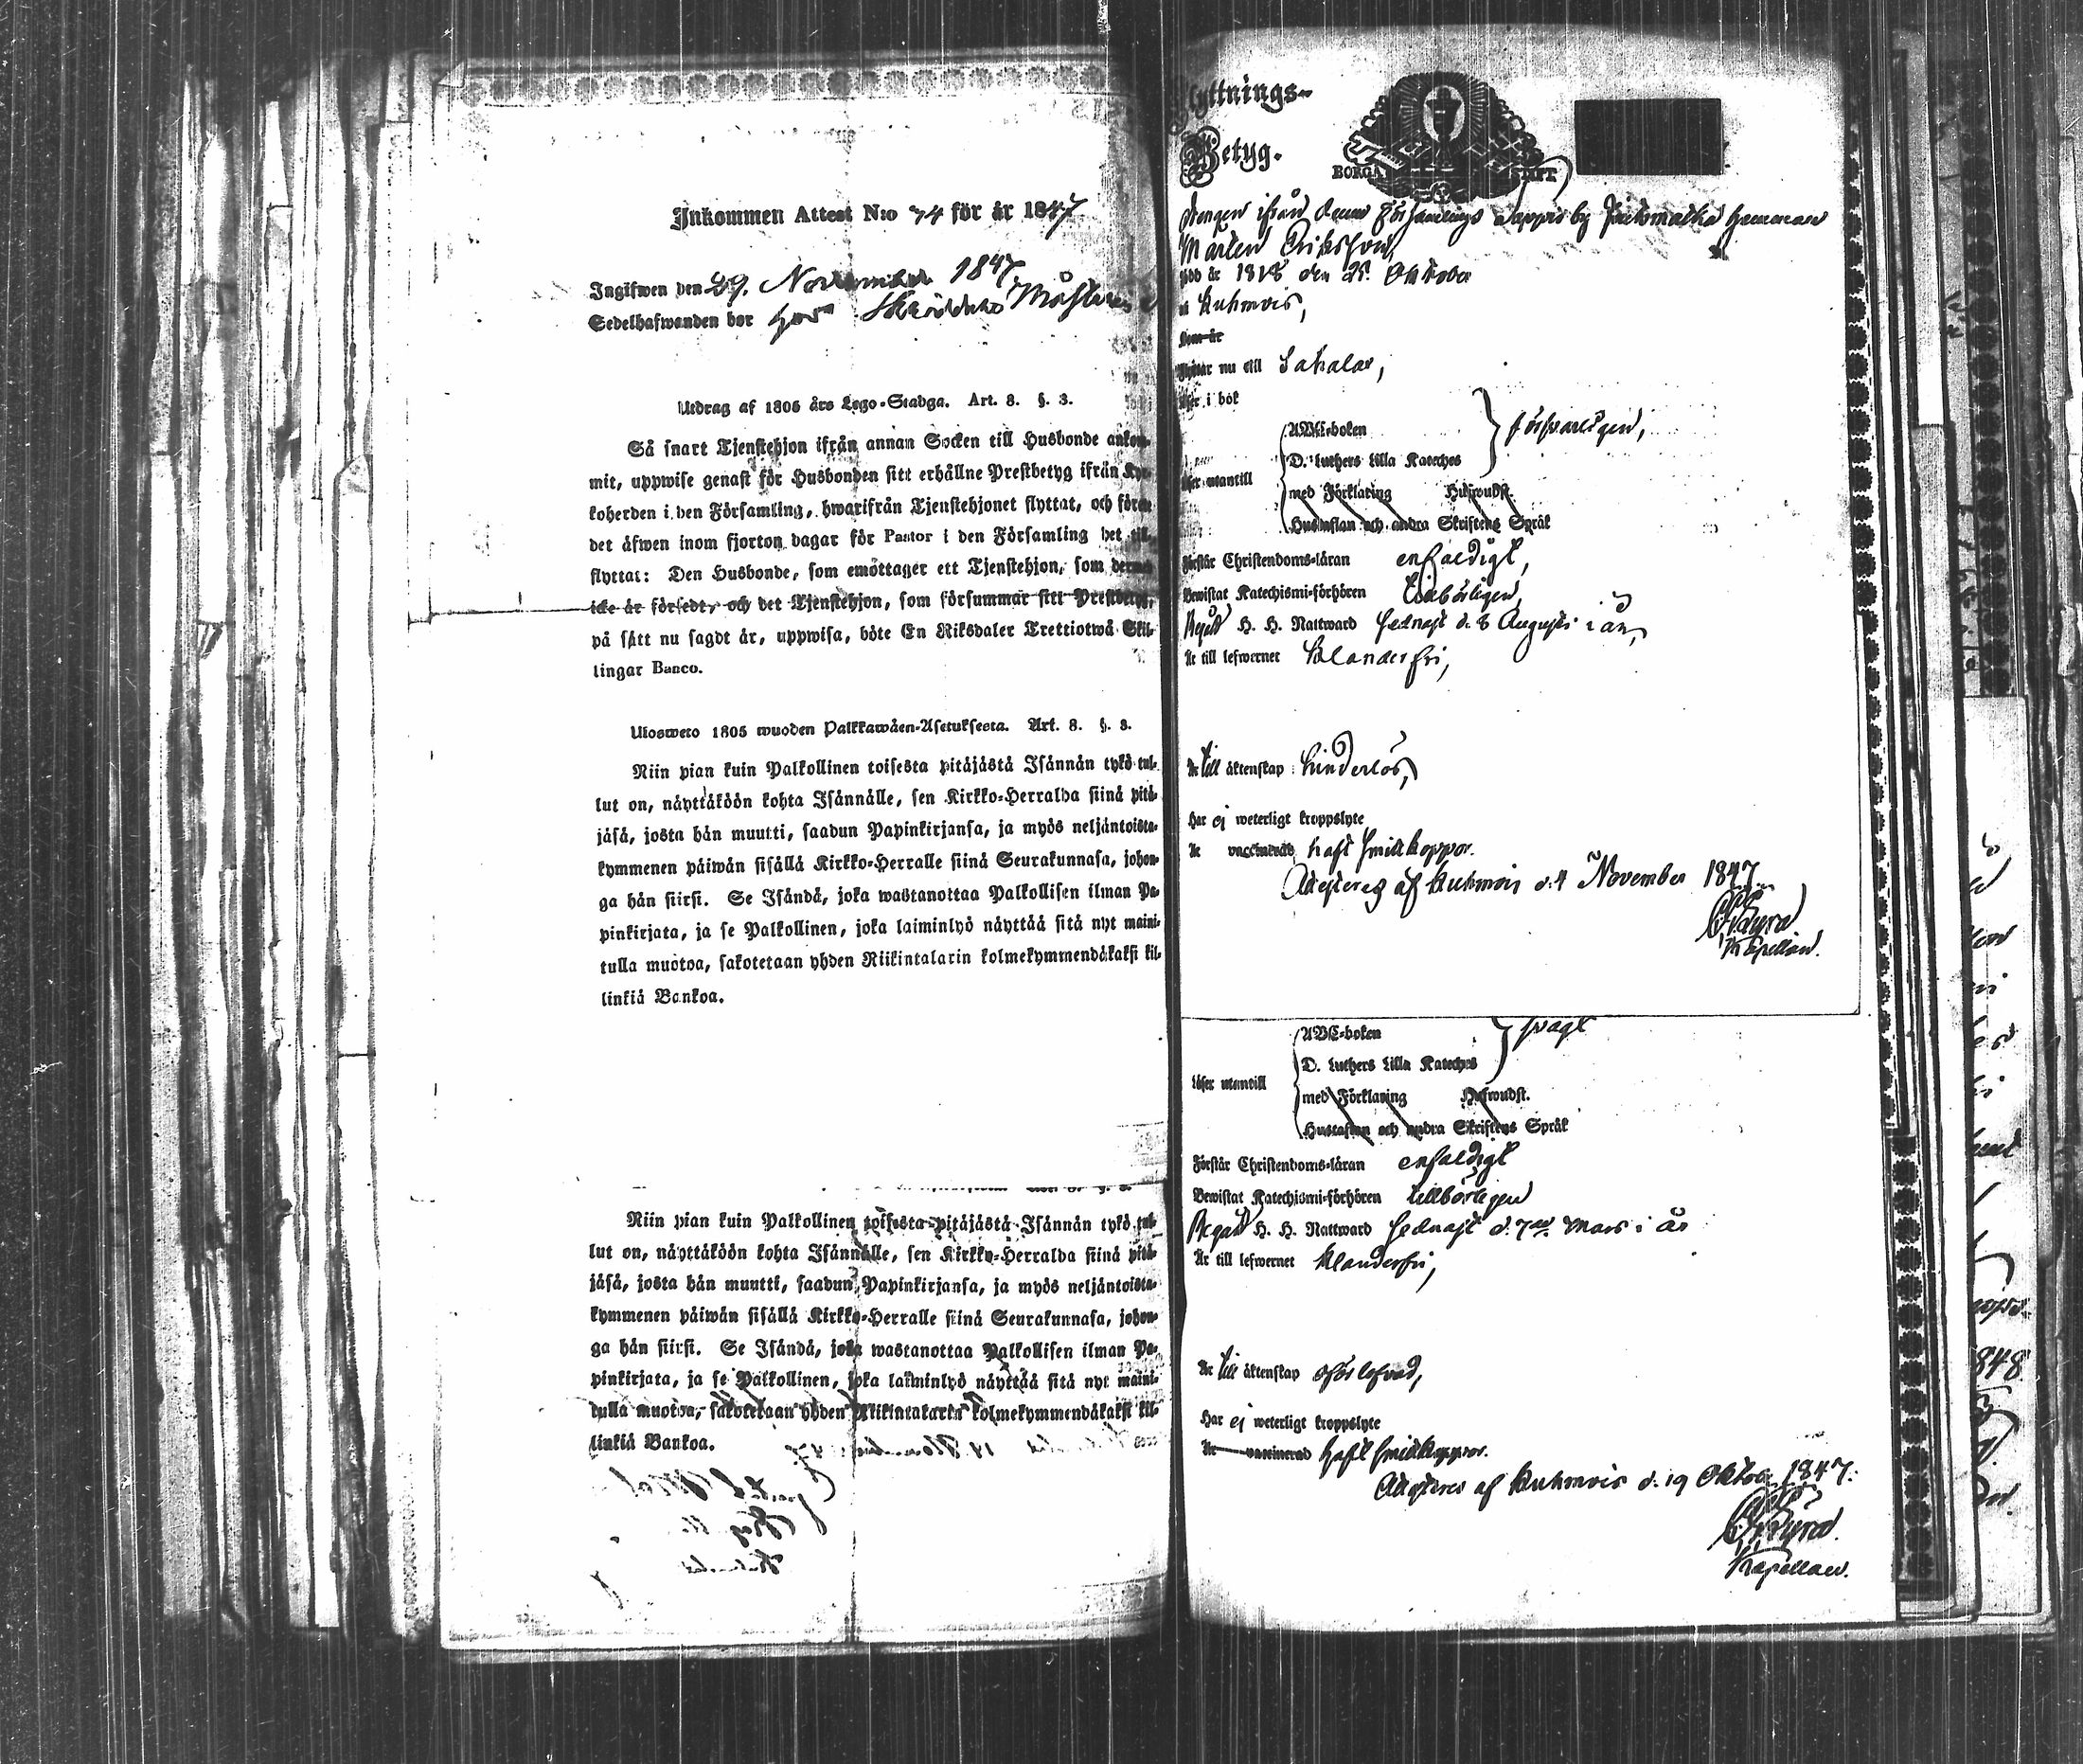 Inkommen Attest N:o 74 för år 1847
Ingifwen den 29. November 1847
Sedelhafwanden bor hos
Utdrag af 1805 års Lego-Stadga. Art. 8. §. 3.
Så snart Tjenstehjon ifrån annan Socken till Husbonde ankom-
mit, uppwise genast för Husbonden sitt erhållne Prestbetyg ifrån Kyr-
koherden i den Församling, hwarifrån Tjenstehjonet flyttat, och förete
det åfwen inom fjorton dagar för Pastor i den Församling det till-
flyttat: Den Husbonde, som emottager ett Tjenstehjon, som dermed
icke är försedt, och det Tjenstehjon, som försummar sitt Prestbetyg,
på sått nu sagdt år, uppwisa, bôte En Riksdaler Trettiotwå Skil-
lingar Banco.
Ulosweto 1805 wuoden Palkkawåen-Asetuksesta. Art. 8. §. 3.
Niin pian kuin Palkollinen toisesta pitåjåstå Isånnån tykô tul-
lut on, nåyttåkôôn kohta Isånnålle, sen Kirkko-Herralda siinå pitå-
jåså, josta hån muutti, saadun Papinkirjansa, ja myôs neljåntoista-
kymmenen påiwån sisållå Kirkko-Herralle siinå Seurakunnasa, johon-
ga hån siirsi. Se Isåndå, joka wastanottaa Palkollisen ilman Pa-
pinkirjata, ja se Palkollinen, joka laiminlyô nåyttåå sitå nyt maini-
tulla muotoa, sakotetaan yhden Riikintalarin kolmekymmendåkaksi kil-
linkiå Bankoa.
Niin pian kuin Palkollinen toisesta pitåjåstå Isånnån tykô tul-
lut on, nåyttåkôôn kohta Isånnålle, sen Kirkko-Herralda siinå pitå-
jåså, josta hån muutti, saadun Papinkirjansa, ja myôs neljåntoista-
kymmenen påiwån sisållå Kirkko-Herralle siinå Seurakunnasa, johon-
ga hån siirsi. Se Isåndå, joka wastanottaa Palkollisen ilman Pa-
pinkirjata, ja se Palkollinen, joka laiminlyô nåyttåå sitå nyt maini-
tulla muotoa, sakotetaan yhden Riikintalarin kolmekymmendåkaksi kil-
linkiå Bankoa.
Flyttnings-
Betyg.
BORGÅ STIFT
Drengen ifrån denna Församlings by hemman
Mårten Eriksson,
född år 1818 den Oktober
i Kuhmois,
Som är
Flyttar nu till Sahalax,
Läser i bok
Läser utantill
ABC-boken
D. Luthers Lilla Kateches
med Förklaring Hufwudst.
Hustaflan och andra Skriftens Språk
försvarligen,
Förstår Christendoms-läran enfaldigt,
Bewistat Katechismi-förhören tillbörligen,
Begått H. H. Nattward sednast d. 8 Augusti i år,
År till lefwernet klanderfri,
År till äktenskap hinderlös,
Har ej weterligt kroppslyte
År vaccinerad haft smittkoppor.
Attesteras af Kuhmois d. 4 November 1847
Kapellan.
Läser utantill
ABC-boken
D. Luthers Lilla Kateches
med Förklaring Hufwudst.
Hustaflan och andra Skriftens Språk
svagt
Förstår Christendoms-läran enfaldigt
Bewistat Katechismi-förhören tillbörligen
Begått H. H. Nattward sednast d. 7de Mars i år
År till lefwernet klanderfri,
År till äktenskap oförlofvad,
Har ej weterligt kroppslyte
År vaccinerad haft smittkoppor.
Attesteras af Kuhmois d. 19 Oktob. 1847.
Kapellan.
848